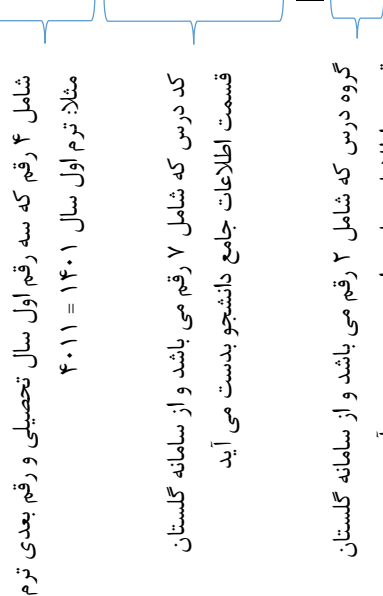 شامل ۴ رقم که سه رقم اول سال تحصیلی و رقم بعدی ترم
مثلا: ترم اول سال ۱۴۰۱ = ۴۰۱۱
کد درس که شامل ۷ رقم می باشد و از سامانه گلستان
قسمت اطلاعات جامع دانشجو بدست می آید
گروه درس که شامل ۲ رقم می باشد و از سامانه گلستان